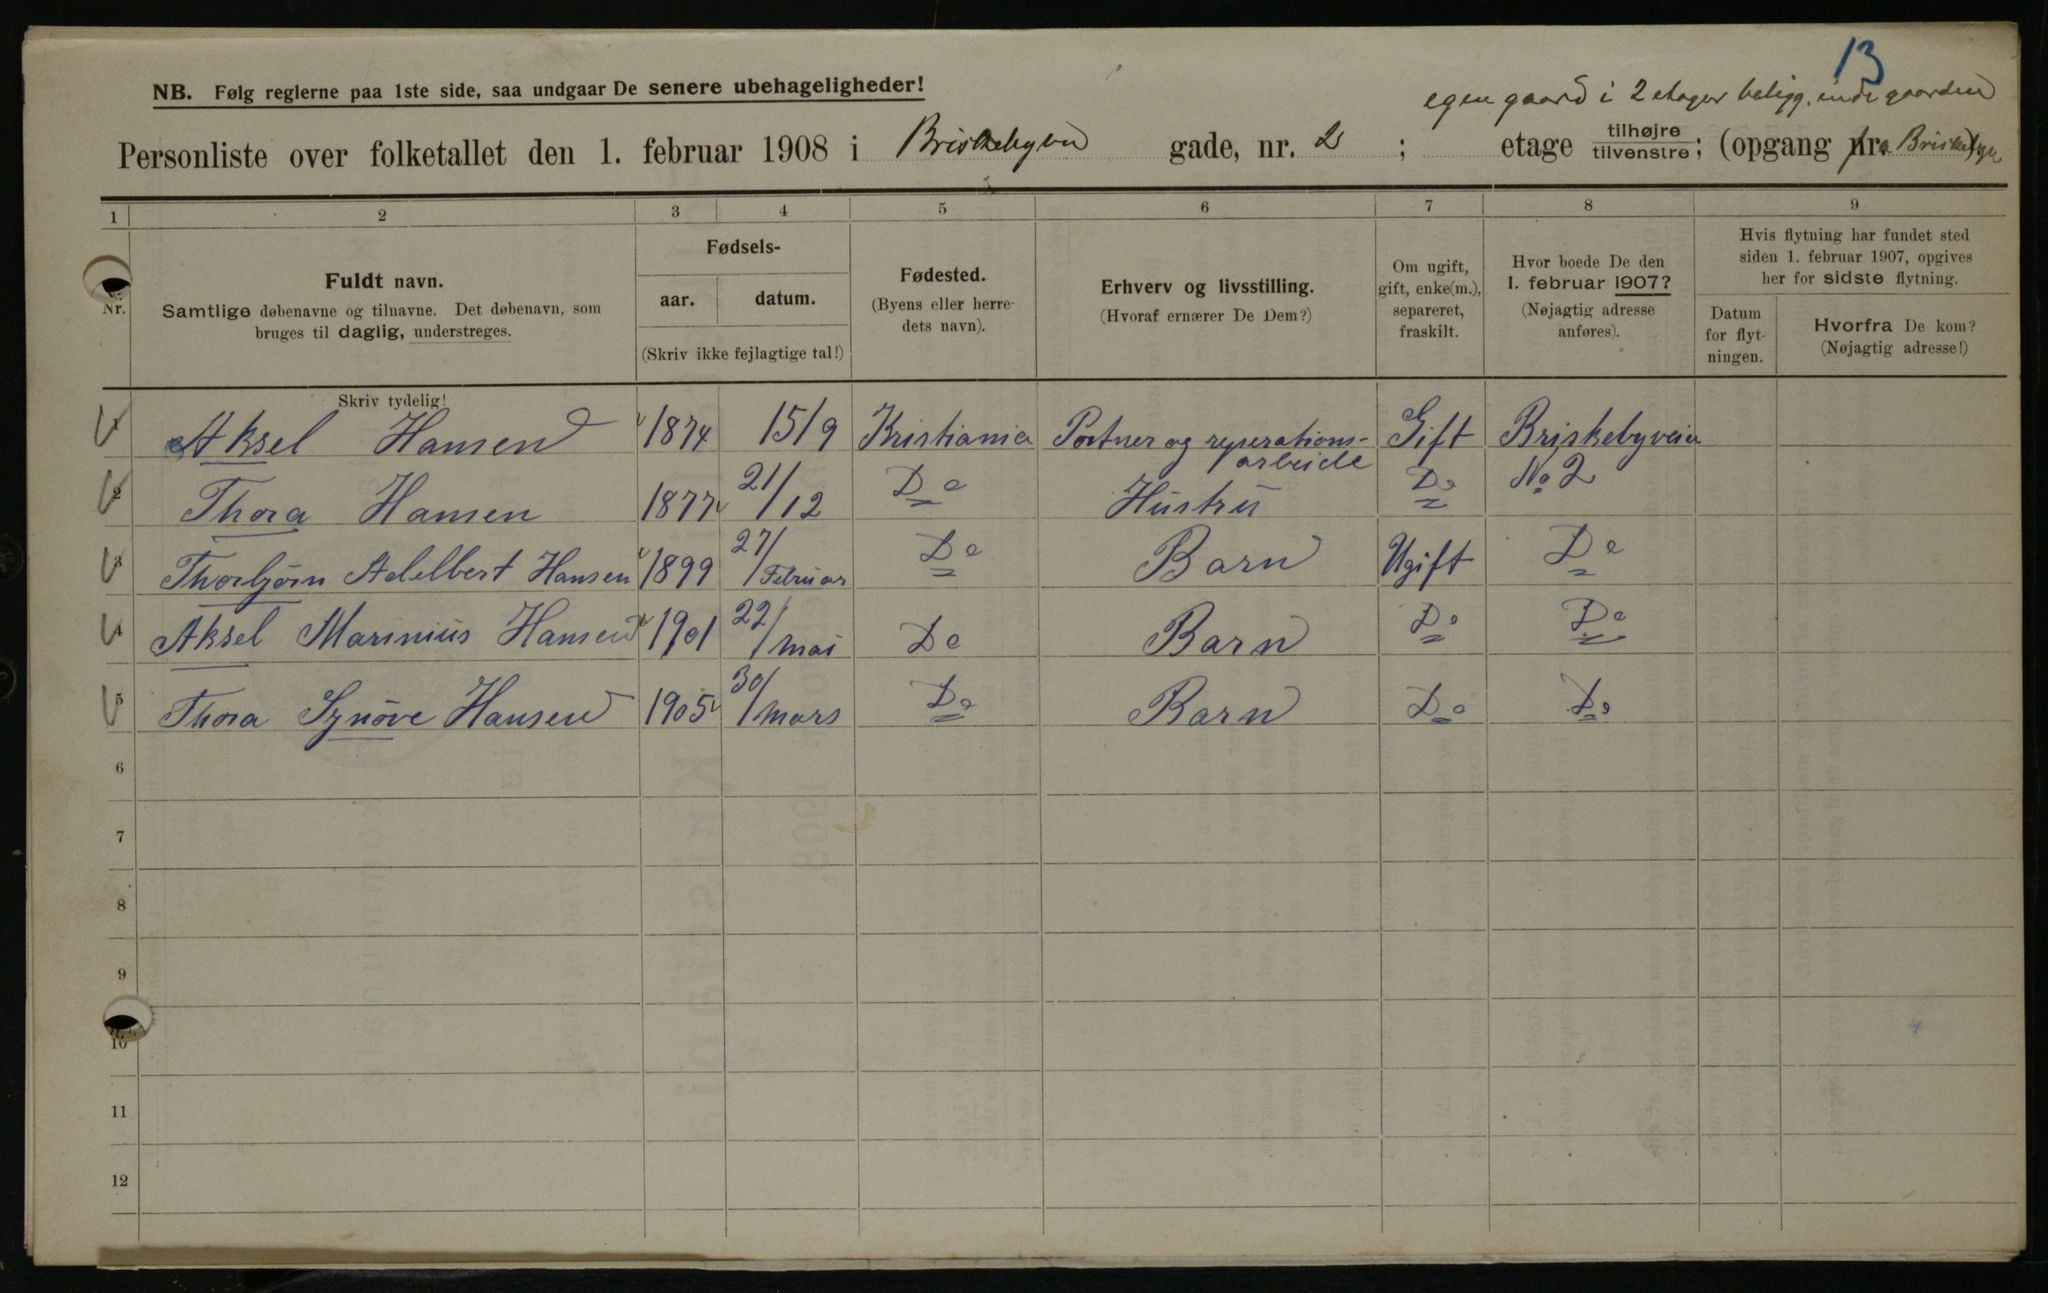 13
NB. Følg reglerne paa 1ste side, saa undgaar De senere ubehageligheder!
egen gaard i 2 etager beligg. gaarden
Personliste over folketallet den 1. februar 1908 i Briskebyvn gade, nr. 2; etage tilhøjre tilvenstre; (opgang nr. Briskebyvn)
1 2 3 4 5 6 7 8 9
Nr.
Fuldt navn.
Samtlige døbenavne og tilnavne. Det døbenavn, som
bruges til daglig, understreges.
Fødsels-
aar. datum.
(Skriv ikke fejlagtige tal!)
Fødested.
(Byens eller herre-
dets navn).
Erhverv og livsstilling.
(Hvoraf ernærer De Dem?)
Om ugift,
gift, enke(m.),
separeret,
fraskilt.
Hvor boede De den
1. februar 1907?
(Nøjagtig adresse
anføres).
Hvis flytning har fundet sted
siden 1. februar 1907, opgives
her for sidste flytning.
Datum
for flyt-
ningen.
Hvorfra De kom?
(Nøjagtig adresse!)
Skriv tydelig!
1 Aksel Hansen 1874 15/9 Kristiania Portner og reperations- Gift Briskebyveien
arbeide
2 Thora Hansen 1877 21/12 Do Hustru Do No 2
3 Thorbjørn Adelbert Hansen 1899 27/Februar Do Barn Ugift Do
4 Aksel Marinius Hansen 1901 22/mai Do Barn Do Do
5 Thora Synøve Hansen 1905 30/mars Do Barn Do Do
6
7
8
9
10
11
12